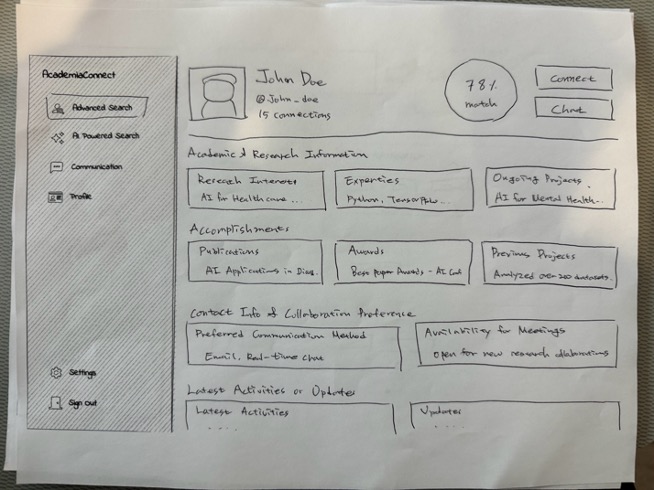 AcademiaConnect
Advanced Search
AI Powered Search
Communication
Profile
Settings
Sign Out
John Doe
@John_doe
15 connections
78%
match
Connect
Chat
Academic & Research Information
Research Interest
AI for Healthcare ...
Experties
Python, TensorFlow...
Ongoing Projects
AI for Mental Health...
Accomplishments
Publications
AI Applications in Diag.
Awards
Best paper Awards - AI Conf
Previous Projects
Analyzed over 200 datasets.
Contact Info & Collaboration Preference
Preferred Communication Method
Email, Real-time chat
Availability for Meetings
open for new research
Latest Activities or Updates
Latest Activities
....
Updates
....